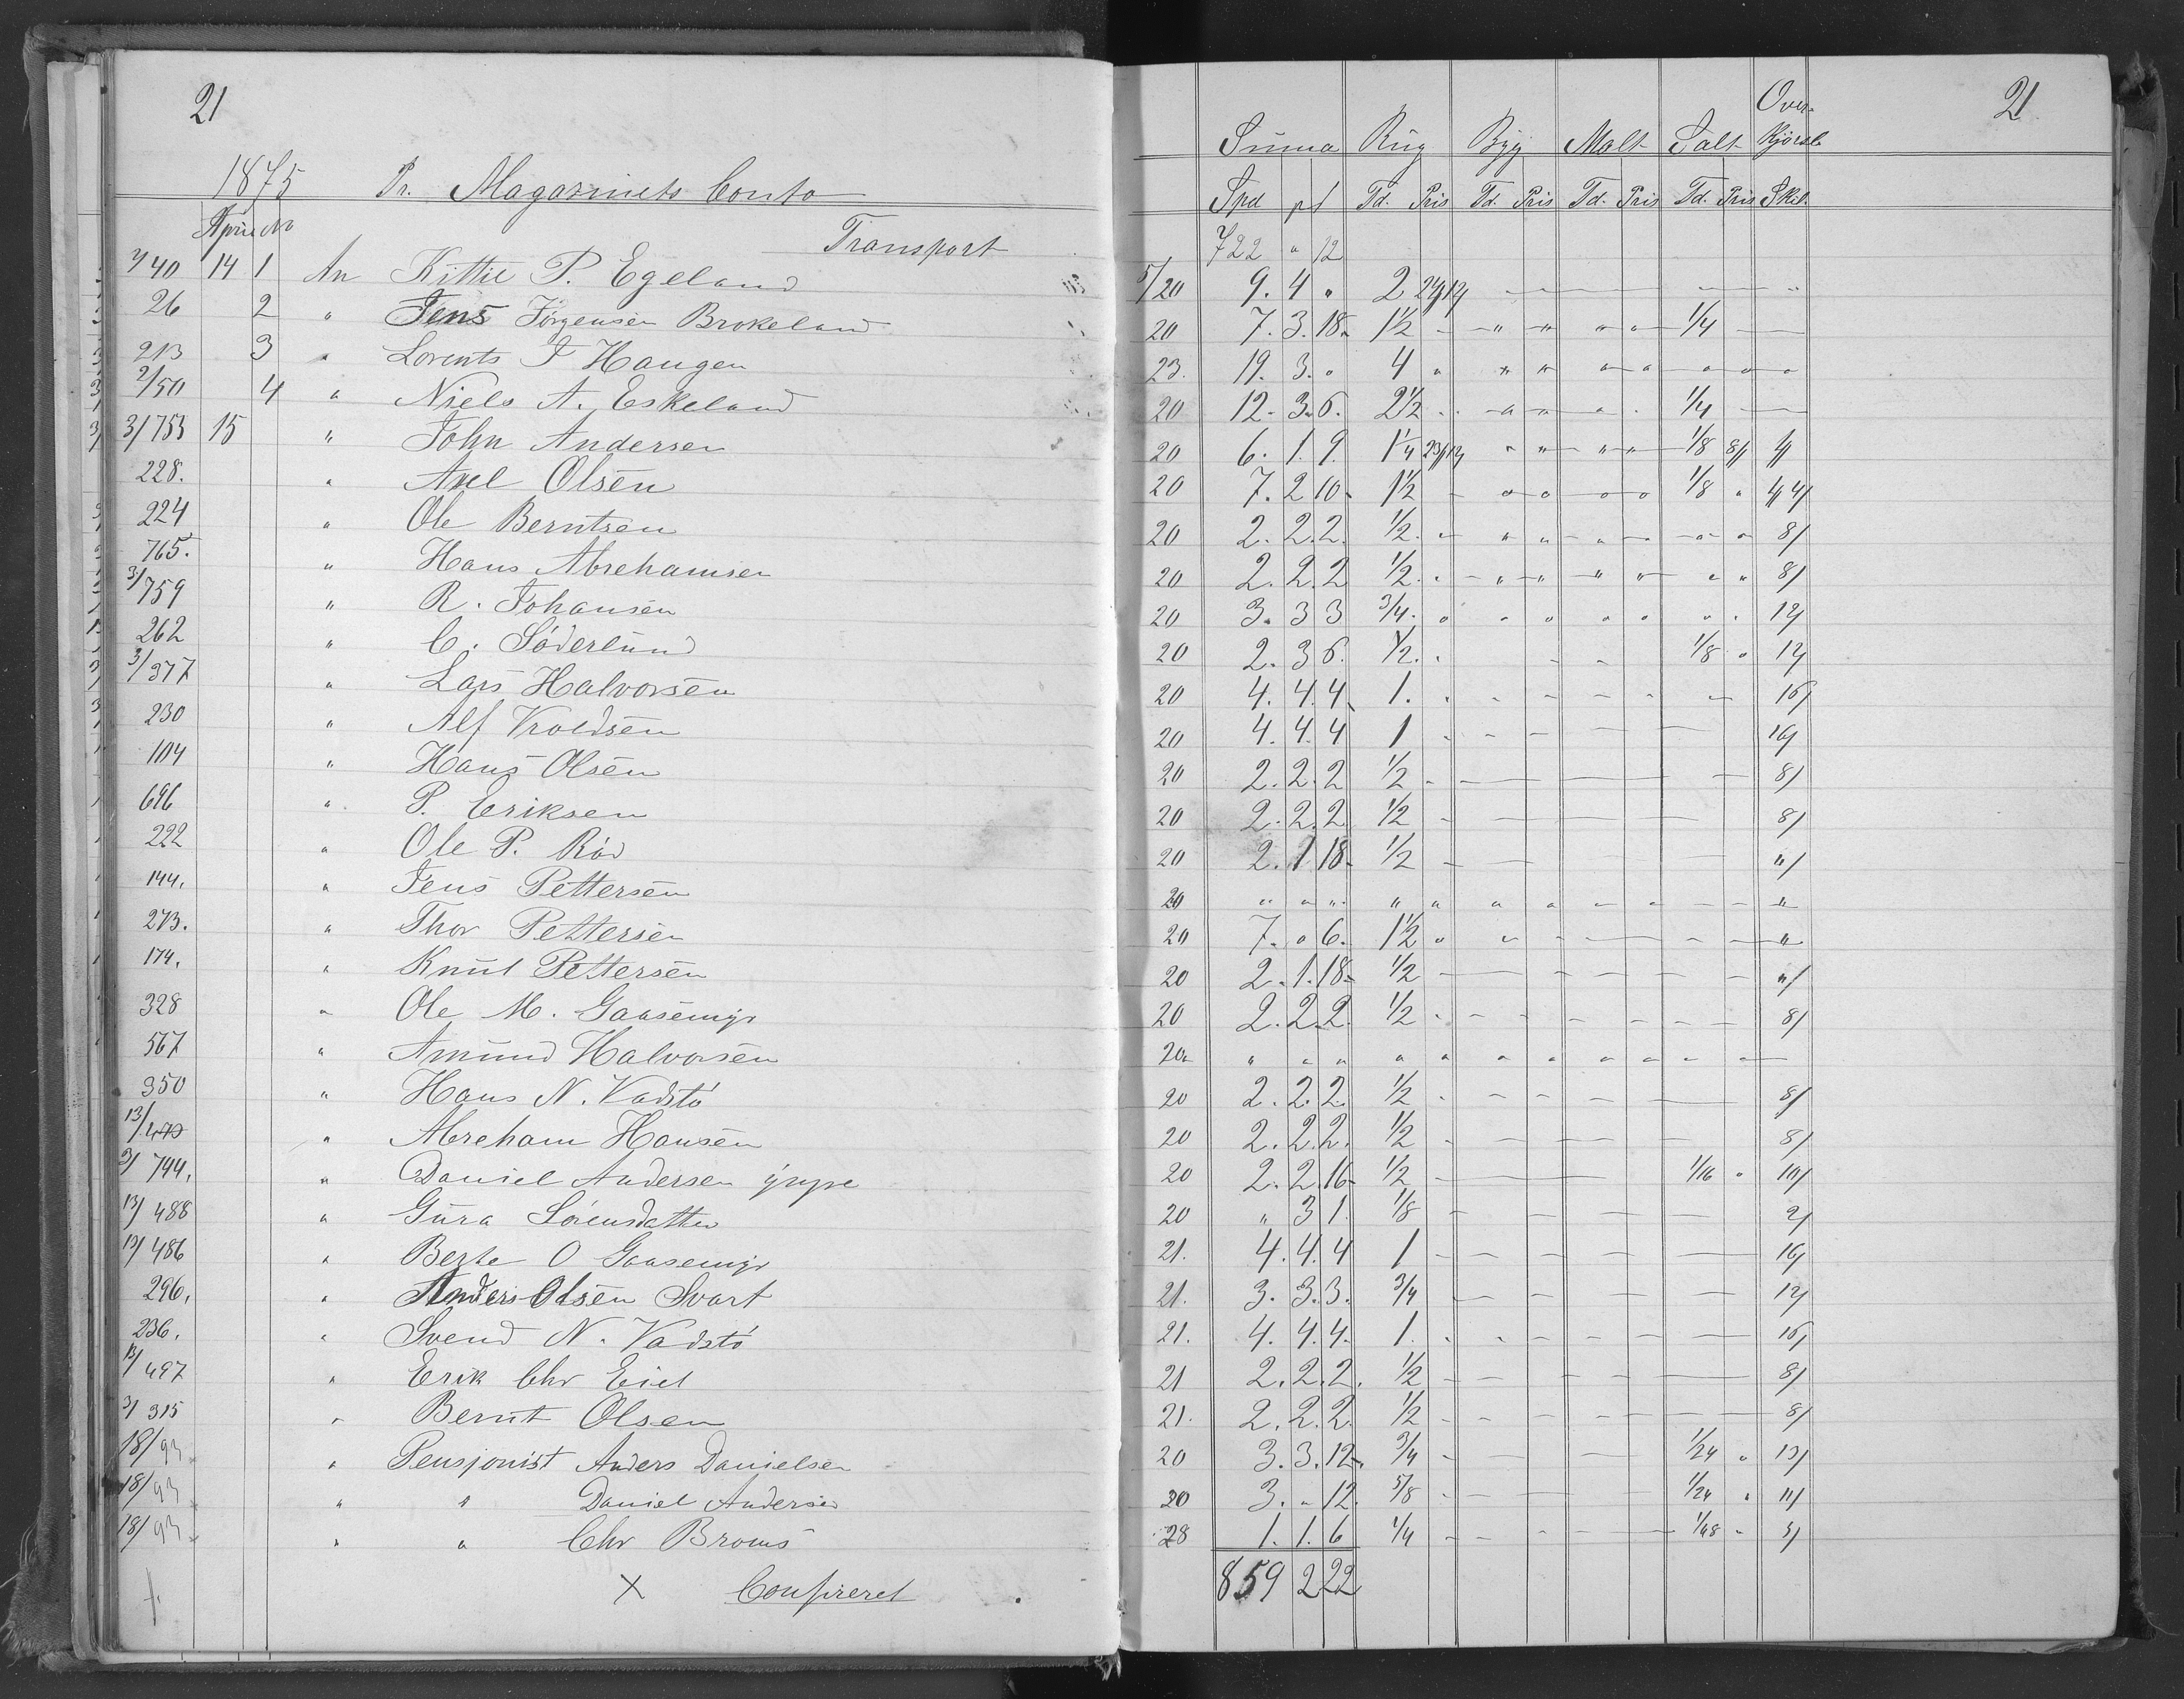 21
1875 Pr. Magazinets Conto
April No
Transport
1/40 14 1 An Kittil P. Egeland
26 2 " Jens Jörgensen Brokeland
213 3 " Lorents J Haugen
2/50 4 " Niels A. Eskeland
3/753 15 " John Andersen
228. " Axel Olsen
224 " Ole Berntsen
765. " Hans Abrehamsen
3/759 " R. Johansen
262 " C. Söderlund
3/377 " Lars Halvorsen
230 " Alf Kroldsen
104 " Hans Olsen
696 " P. Eriksen
222 " Ole P. Röd
144. " Jens Pettersen
273. " Thor Pettersen
174. " Knut Pettersen
328 " Ole M. Gaasemyr
567 " Amund Halvorsen
350 " Hans N. Vadstö
13/479 " Abreham Hansen
3/744. " Daniel Andersen yngre
13/488 " Gura Sörensdatter
13/486 " Berte O Gaasemyr
296. " Anders Olsen Svart
236. " Svend N. Vadstö
13/497 " Erik Chr Eiet
3/315 " Bernt Olsen
18/93 " Pensjonist Anders Danielsen
18/93 " " Daniel Andersen
18/93 " " Chr Broms
X Confireret
21.
Summa Rug Byg Malt Salt Over-kjörsel
Spd pt Td. Pris Td. Pris Td. Pris Td. Pris Skil.
722 " 12
5/20 9. 4 " 2 24/12
20 7. 3. 18 1½ 1/4
23. 19. 3. " 4 "
20 12. 3. 6. 2½ 1/4
20 6. 1. 9. 1¼ 23/12 1/8 8/ 4/
20 7. 2 10 1½ 1/8 " 4/
20 2. 2. 2. ½ 8/
20 2. 2. 2 ½ 8/
20 3. 3 3 3/4 12/
20 2. 3 6. ½ 1/8 " 12/
20 4. 4. 4 1. 16/
20 4. 4. 4 1 16/
20 2. 2. 2 ½ 8/
20 2. 2. 2 ½ 8/
20 2. 1 18 ½ "/
20 " " " " "
20 7. " 6. 1½ " "
20 2. 1. 18 ½ "/
20 2. 2. 2. ½ 8/
20 " " " " "
20 2. 2. 2. ½ 8/
20 2. 2. 2. ½ 8/
20 2. 2. 16 ½ 1/16 " 10/
20 " 3 1. 1/8 2/
21. 4. 4. 4 1 16/
21. 3. 3. 3. 3/4 12/
21. 4. 4. 4. 1. 16/
21 2. 2. 2. ½ 8/
21. 2. 2. 2. ½ 8/
20 3. 3. 12 3/4 1/24 " 13/
20 3. " 12. 5/8 1/24 " 11/
28 1. 1. 6 1/4 1/48 " 5/
859 2 22